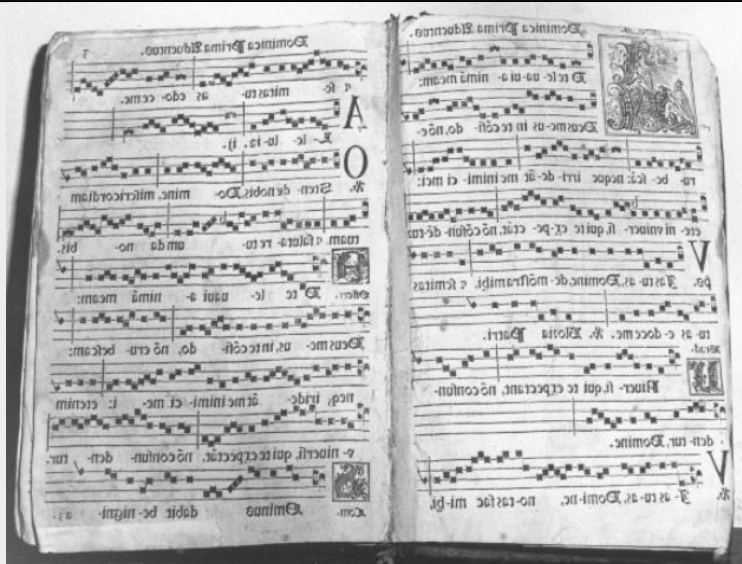 Dominica Prima Aduentus.
D te le ua-ui a- nimā meam:
Deus me-us in te cōfi- do, nō e-
ru- be- scā: neque irri- de-āt me inimi- ci mei:
ete- ni vniuer- si, qui te ex-pe- ctāt, nō cōfun-dē-tur.
ps. V Ias tu- as, Domine, de-mōstra mihi, & semitas
tu- as e-doce me. ℣. Gloria Patri.
Grad. U Niuer- si, qui te expectant, nō confun-
den- tur, Domine.
℣. V I-as tu-as, Domi-ne, no-tas fac mi-hi,
Dominica Prima Aduentus. 3
& se- mitas tu- as edo- ce me.
A L- le- lu-ia. ij.
℣. O Sten- de nobis, Do- mine, misericordiam
tuam, & saluta- re tu- um da no- bis.
Offert. A D te le- uaui a- nimā meam:
Deus me- us, in te cōfi- do, nō eru- bescam:
neq; iride- āt me inimi- ci me- i: etenim
v- niuersi, qui te expectāt, nō confun- den- tur.
Com. D Ominus dabit be-nigni-
a 3.